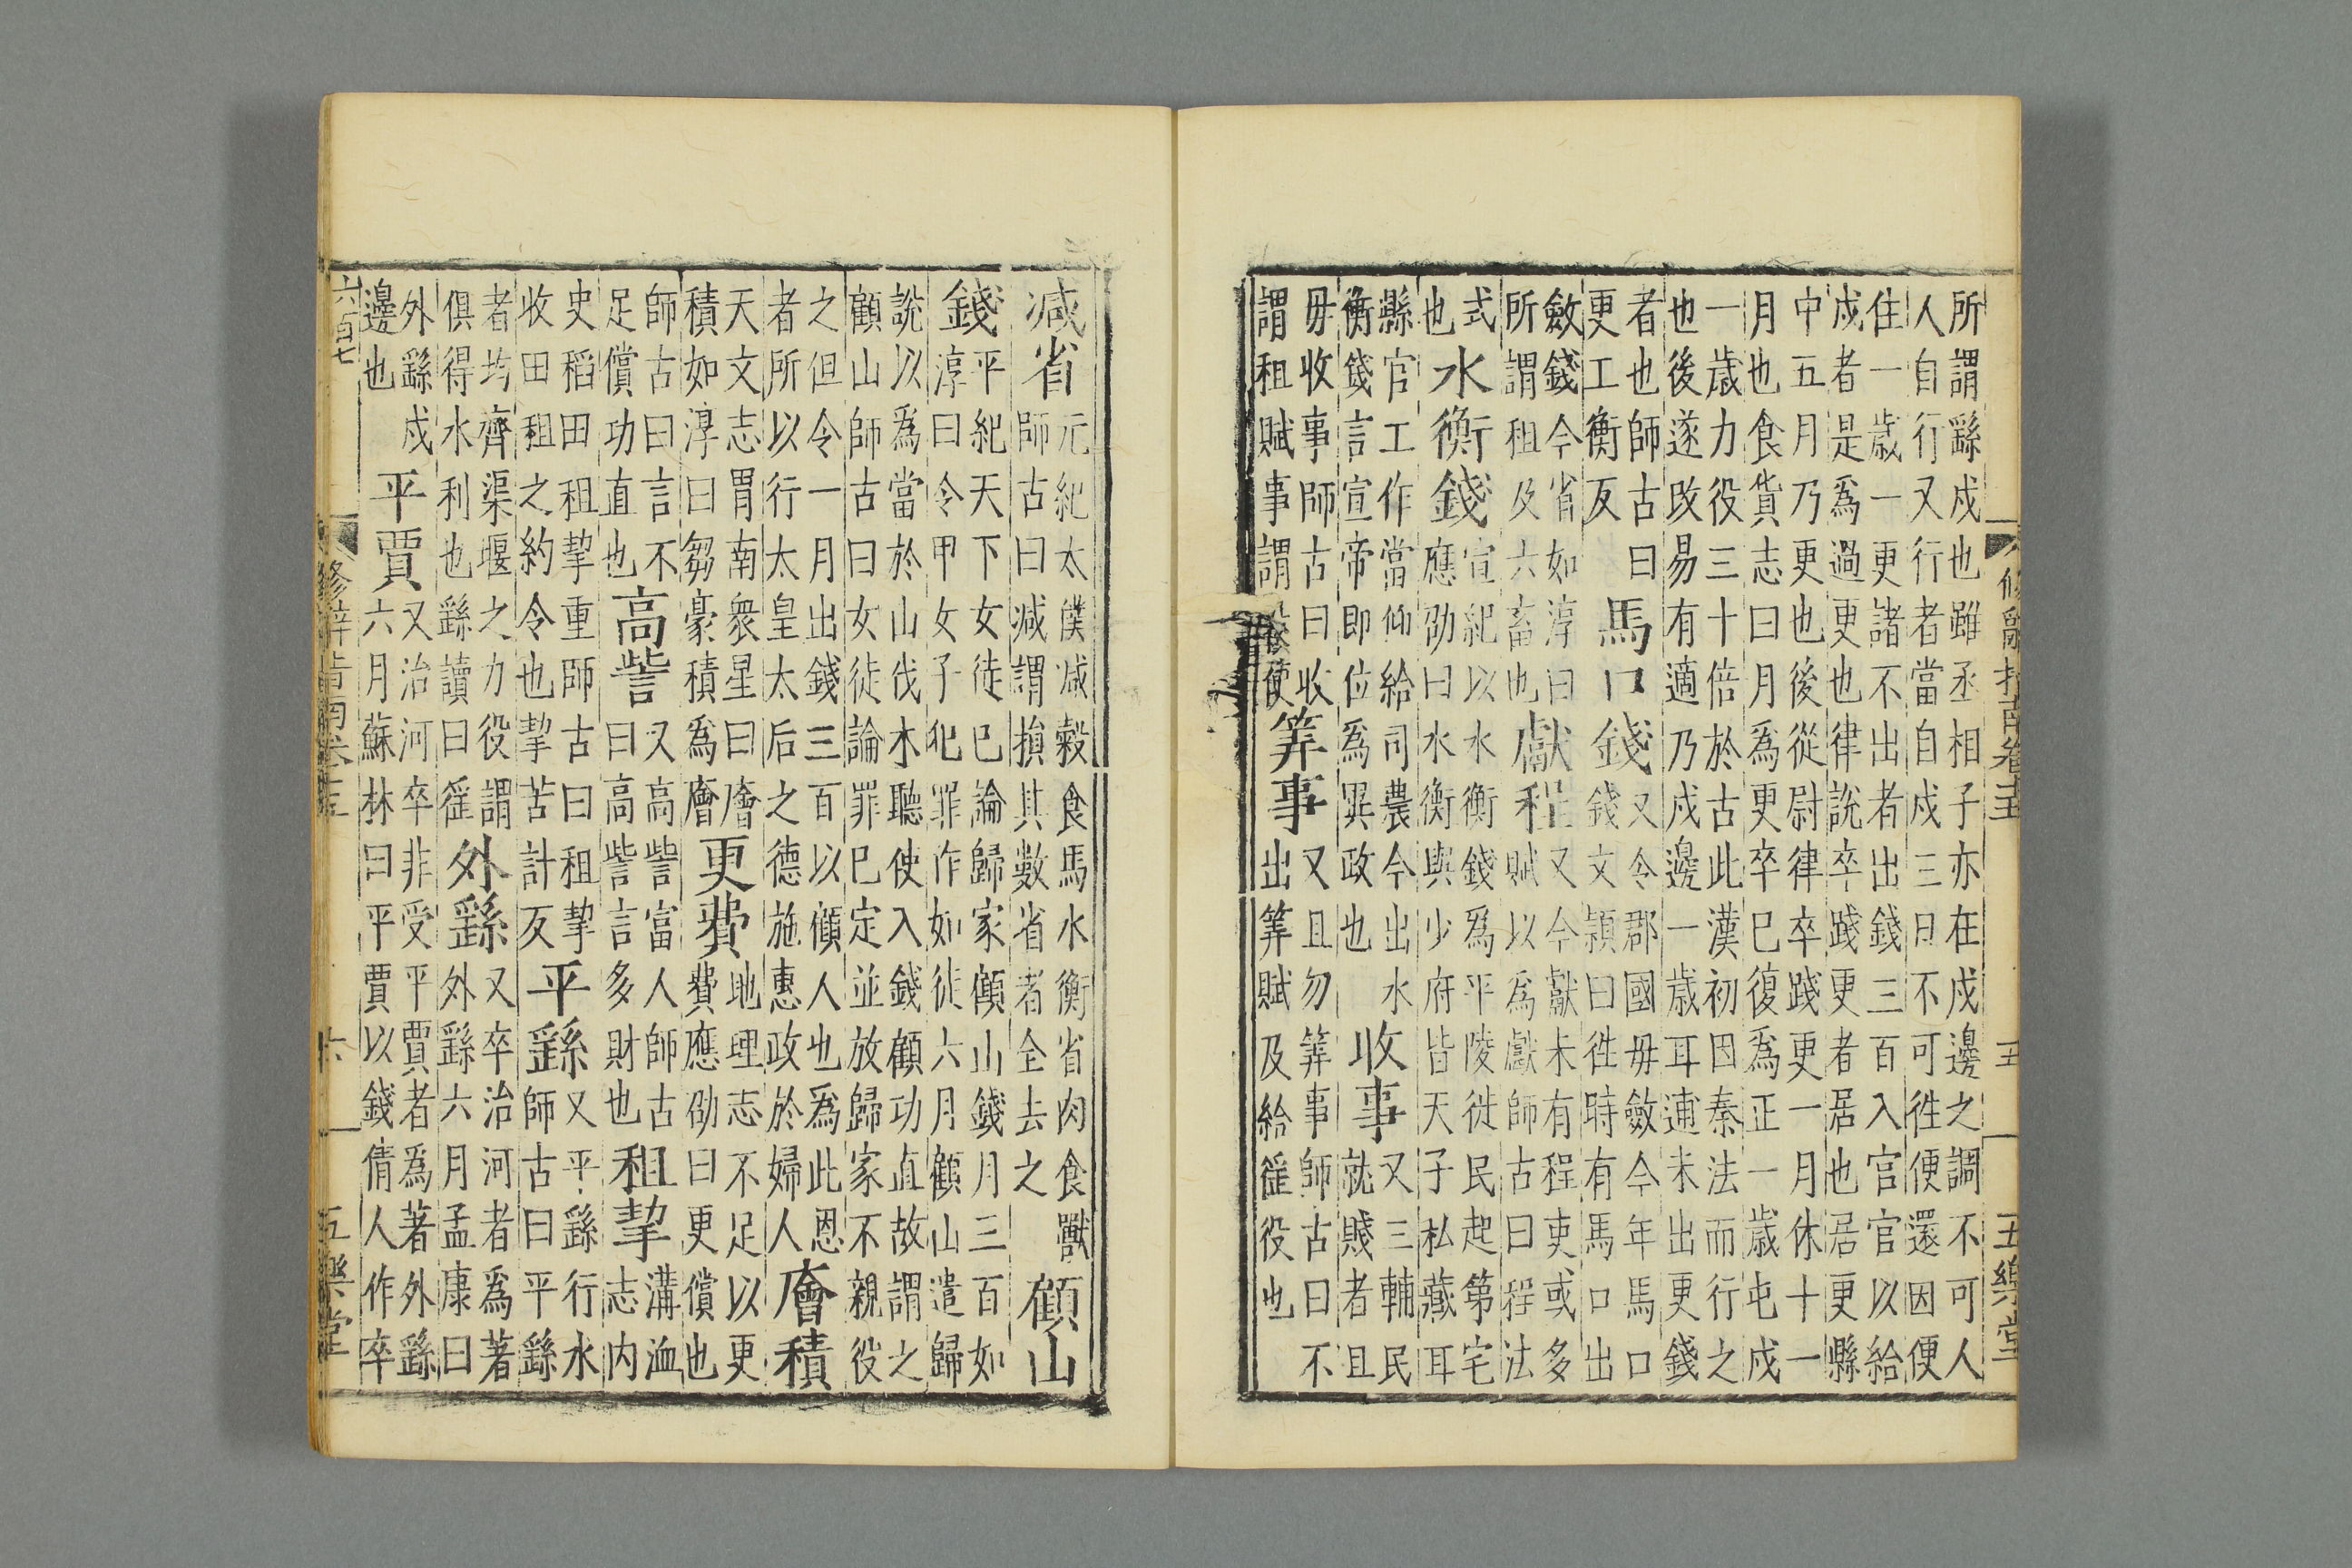 修辭指南卷十五 五 五樂堂
所謂繇戍也雖丞相子亦在戍邊之調不可人
人自行又行者當自戍三日不可徃便還因便
住一歳一更諸不出者出錢三百入官官以給
戍者是爲過更也律說卒踐更者居也居更縣
中五月乃更也後從尉律卒踐更一月休十一
月也食貨志曰月爲更卒巳復爲正一歳屯戍
一歳力役三十倍於古此漢初因秦法而行之
也後遂改易有適乃戍邊一歳耳逋未出更錢
者也師古曰
更工衡反
馬口錢
又令郡國毋斂今年馬口
錢文頴曰徃時有馬口出
斂錢今省如淳曰
所謂租及六畜也
獻程
又今獻未有程吏或多
賦以爲獻師古曰程法
式
也
水衡錢
宣紀以水衡錢爲平陵徙民起第宅
應劭曰水衡與少府皆天子私藏耳
縣官工作當仰給司農今出水
衡錢言宣帝即位爲異政也
收事
又三輔民
就賤者且
毋收事師古曰收
謂租賦事謂役使
筭事
又且勿筭事師古曰不
出筭賦及給徭役也
减省
元紀太僕减榖食馬水衡省肉食獸
師古曰减謂損其數省者全去之
顧山
錢
平紀天下女徒已論歸家顧山錢月三百如
淳曰令甲女子犯罪作如徒六月顧山遣歸
說以爲當於山伐木聽使入錢顧功直故謂之
顧山師古曰女徒論罪巳定並放歸家不親役
之但令一月出錢三百以顧人也爲此恩
者所以行太皇太后之德施惠政於婦人
廥積
天文志胃南衆星曰廥
積如淳曰芻藁積爲廥
更費
地理志不足以更
費應劭曰更償也
師古曰言不
足償功直也
高訾
又高訾富人師古
曰高訾言多財也
租挈
溝洫
志内
史稻田租挈重師古曰租挈
收田租之約令也挈苦計反
平繇
又平繇行水
師古曰平繇
者均齊渠堰之力役謂
俱得水利也繇讀曰徭
外繇
又卒治河者爲著
外繇六月孟康曰
外繇戍
邊也
平賈
又治河卒非受平賈者爲著外繇
六月蘇林曰平賈以錢倩人作卒
六百七
修辭指南卷十五 六 五樂堂